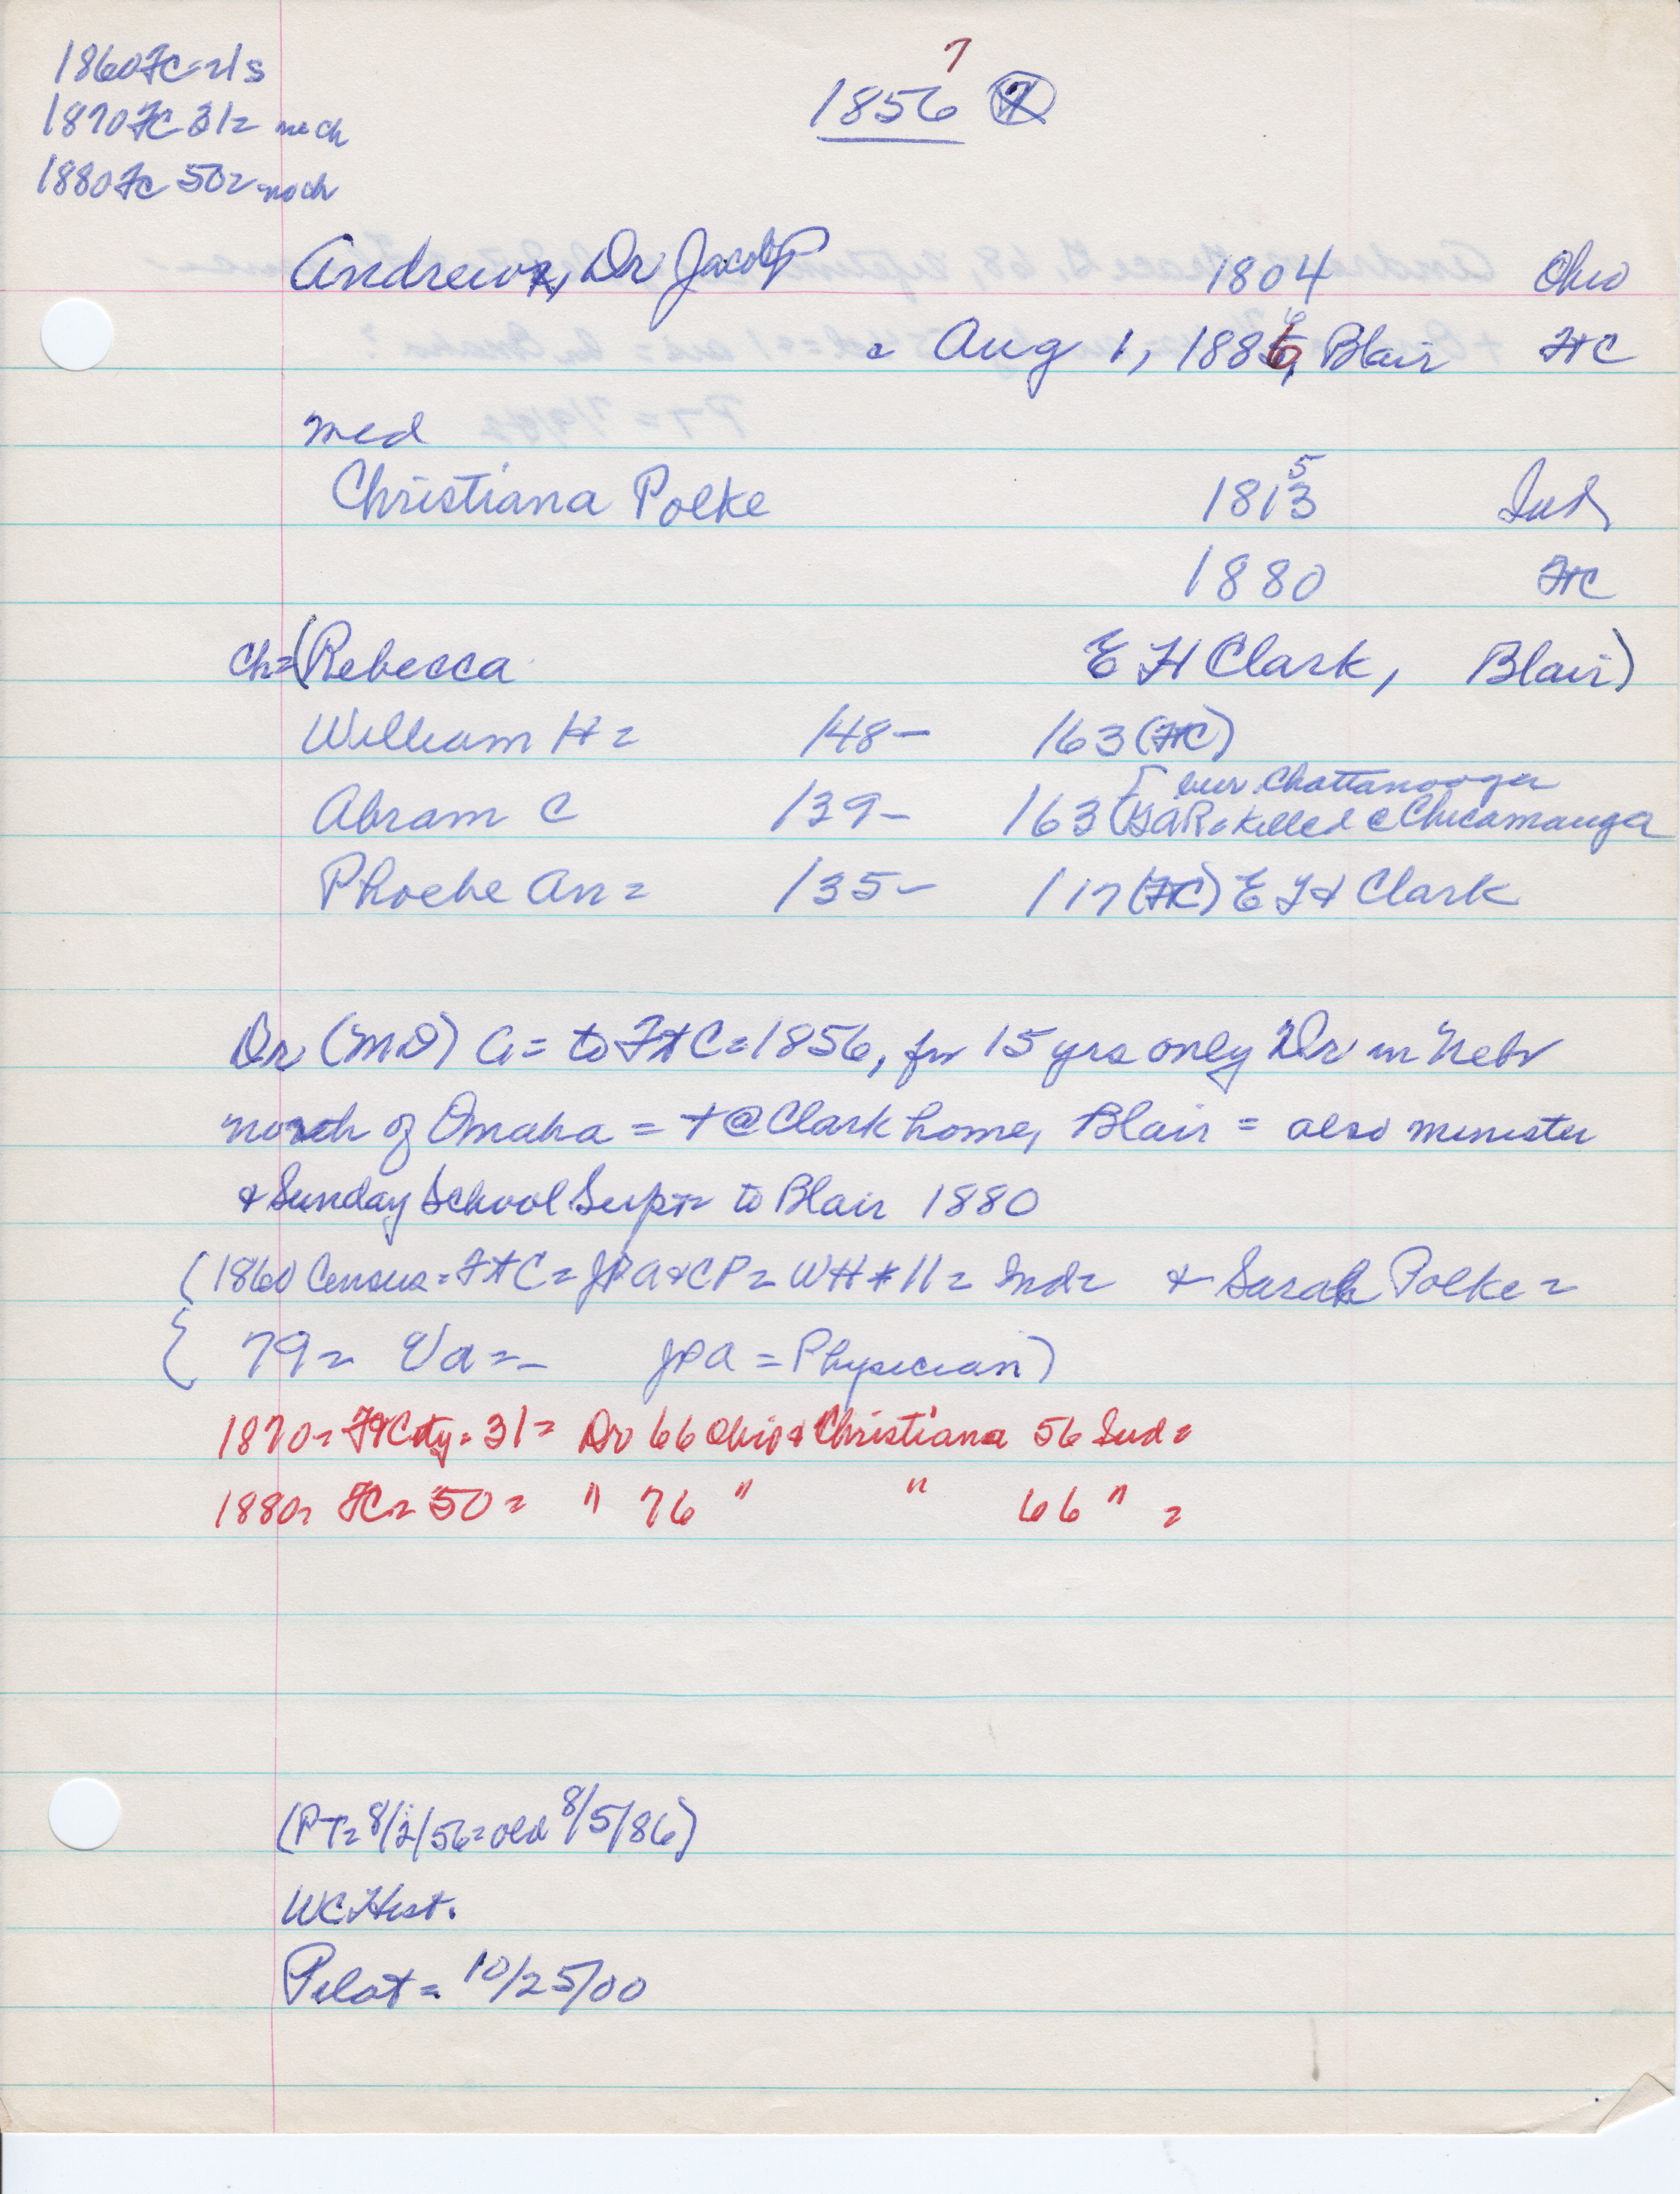 1860 FC=21s
1870 FC 31= no ch
1880 FC 50= no ch
7
1856
Andrews, Dr Jacob P 1804 Ohio
= Aug 1, 1886, Blair FtC
med
Christiana Polke 1813 Ind
5
1880 FtC
Ch=(Rebecca E H Clark, Blair)
William H= /48- /63 (FtC)
bur Chattanooga
Abram C /39- /63 (GAR=killed @ Chicamauga
Phoebe An= /35- /17 (FtC) E H Clark
Dr (MD) A= to FtC=1856, for 15 yrs only Dr in Nebr
north of Omaha = + @ Clark home, Blair = also minister
& Sunday School Supt= to Blair 1880
(1860 Census=FtC=JPA&CP=WH*11= Ind= & Sarah Polke=
79= Va=- JPA = Physician)
1870= FtCty=31= Dr 66 Ohio & Christiana 56 Ind=
1880= FC= 50= " 76 " " 66 " =
(PT=8/2/56=old 8/5/86)
WC Hist.
Pilot= 10/25/00